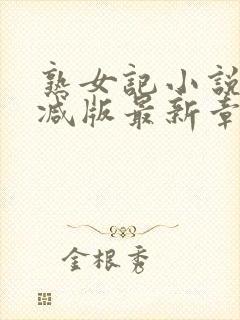 熟女記小說
减版最新章
金根秀